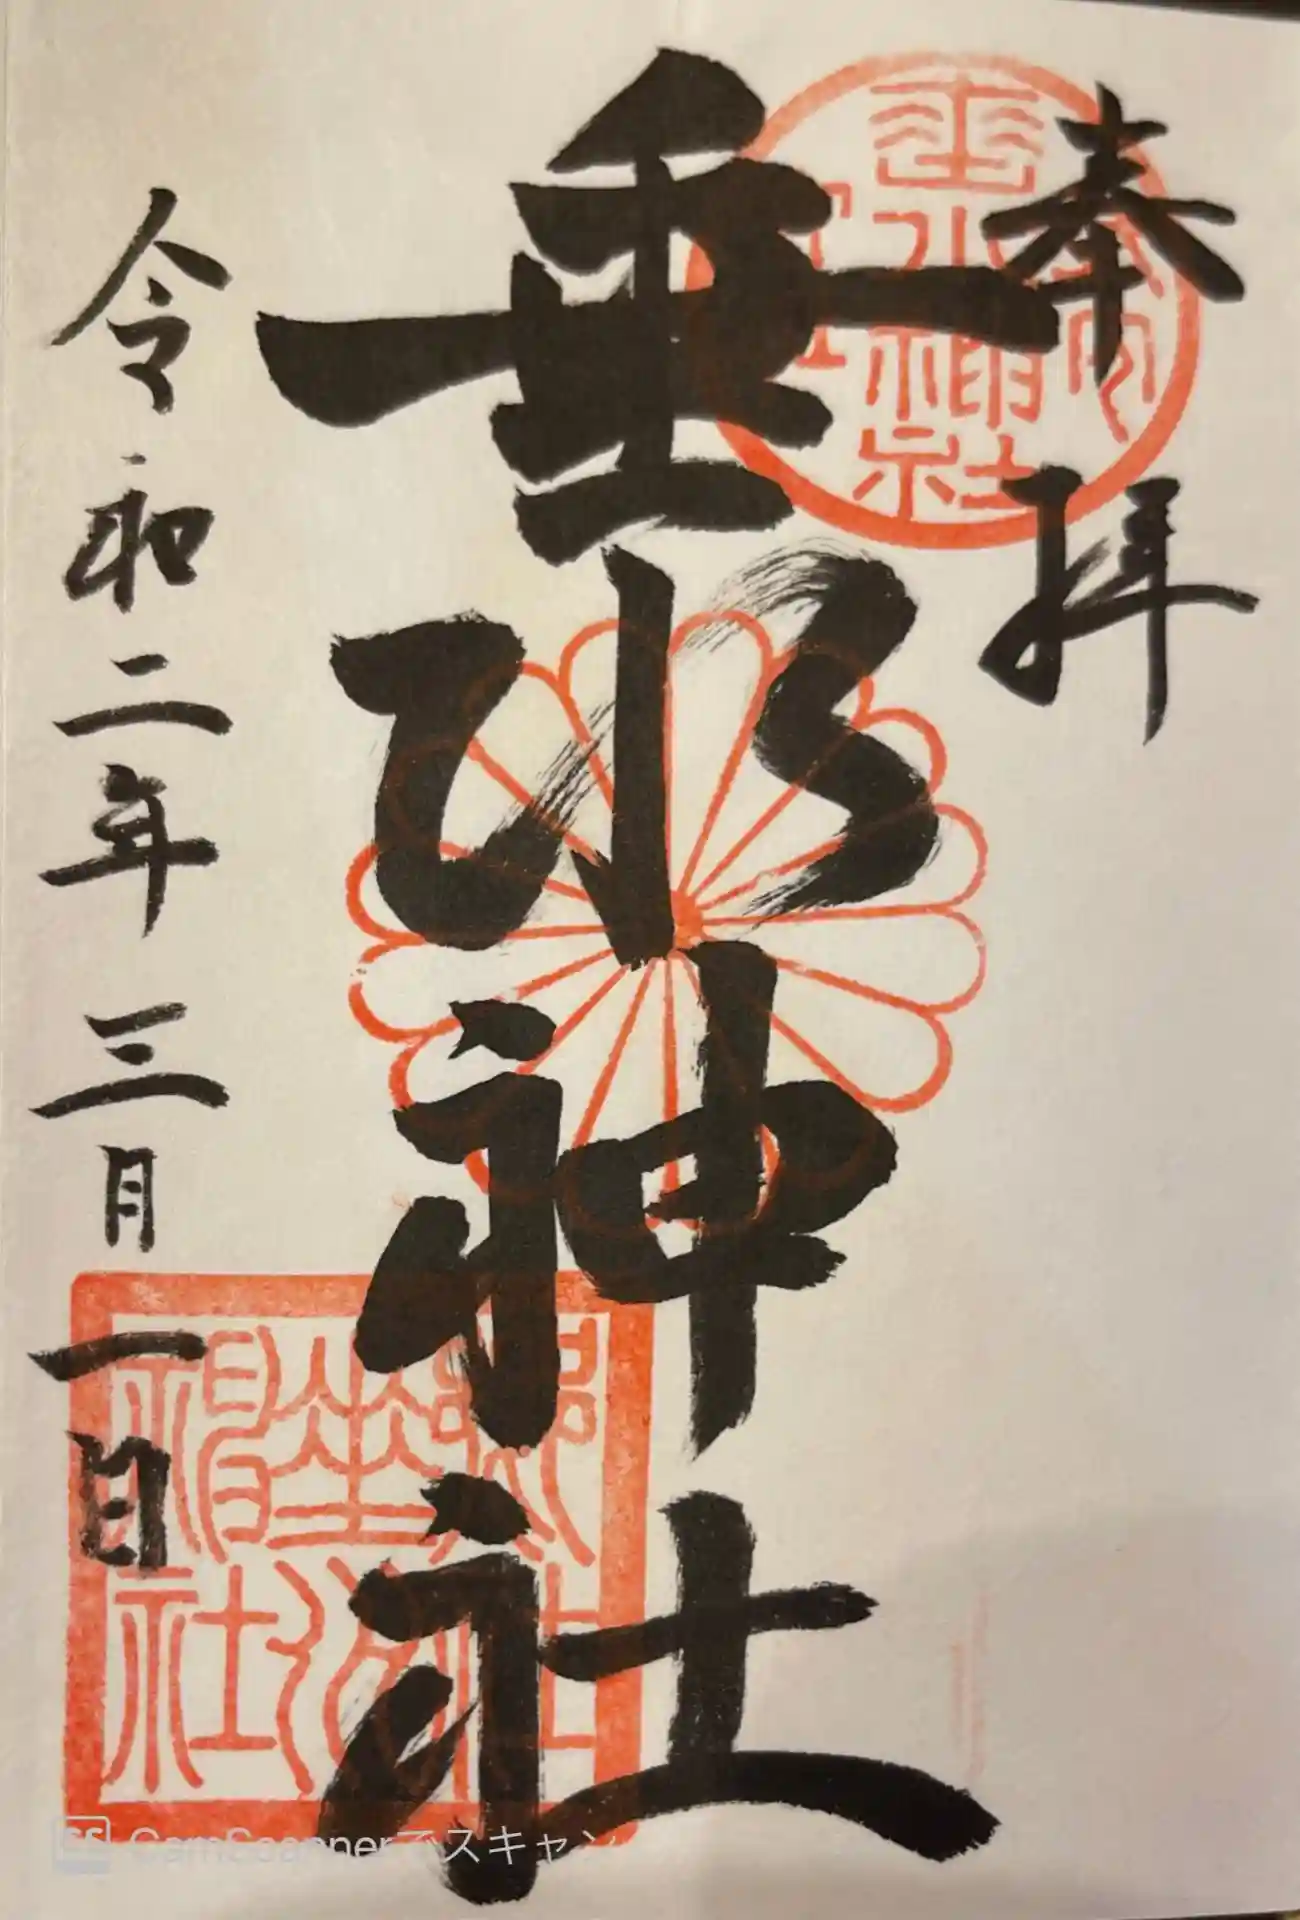 奉拝
垂水神社
令和二年三月一日
垂水神社
CamScannerでスキャン